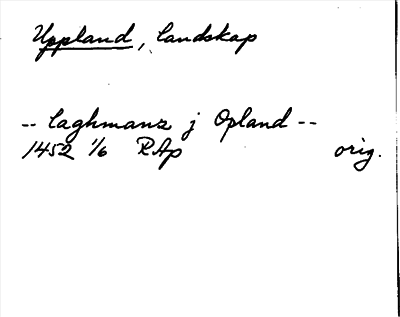 Uppland, landskap
-- laghmanz j Opland --
1452 1/6 RAp orig.